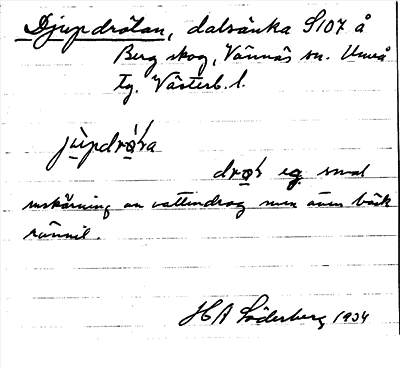 Djupdrålan, dalsänka S107 å
Berg skog, Vännäs sn. Umeå
tg. Västerb. l.
drå̀l eg. smal
inskärning av vattendrag men även bäck
rännil.
H A Söderberg 1934